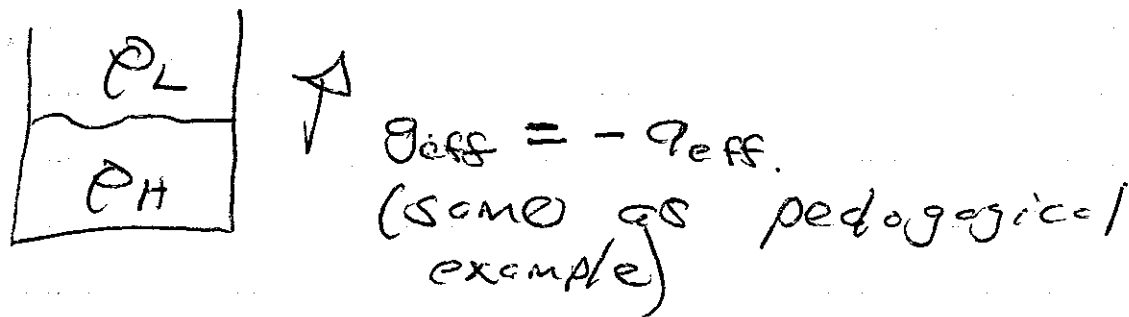 ρL
ρH
geff = - aeff.
(same as pedagogical
example)